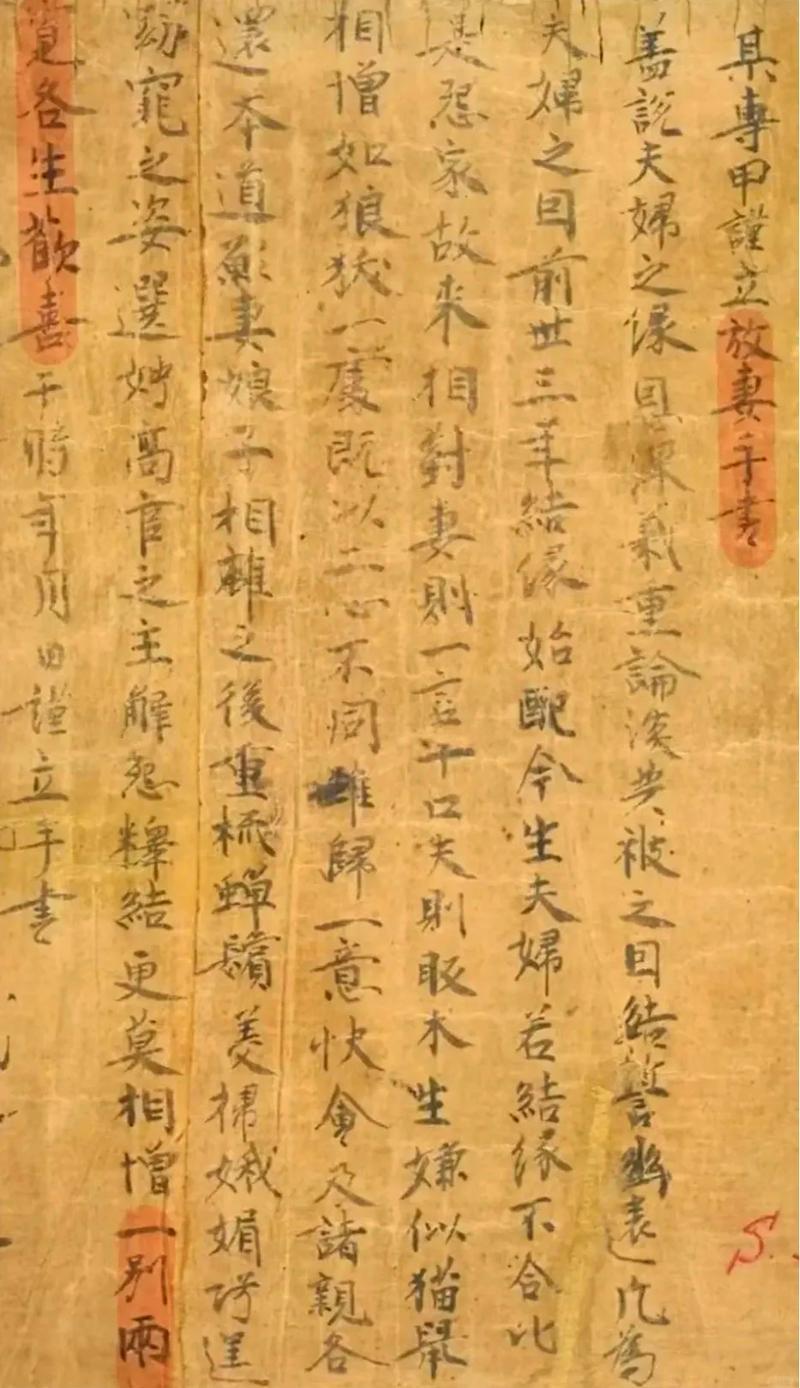 某專甲謹立放妻手書
蓋說夫婦之緣恩深義重論談共被之因結誓幽遠凡為
夫婦之因前世三年結緣始配今生夫婦若結緣不合比
是怨家故來相對妻則一言十口夫則眅木生嫌似猫鼠
相憎如狼狄一處既以二心不同難歸一意快會及諸親各
還本道願妻娘子相離之後重梳蟬鬢美掃娥媚巧逞
窈窕之姿選娉高官之主解怨釋結更莫相憎一別兩
寬各生歡喜于時年月日謹立手書
S.